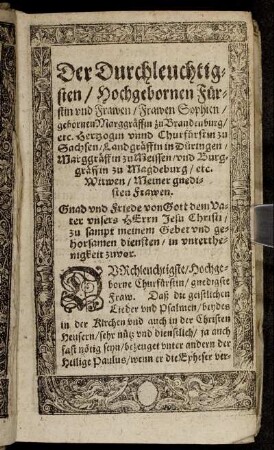 Der Durchleuchtig-
sten / Hochgebornen Für-
stin vnd Frawen / Frawen Sophien /
gebornen Marggräffin zu Brandenburg /
etc. Hertzogin vnnd Churfürstin zu
Sachsen / Landgräffin in Düringen /
Marggräffin zu Meissen / vnd Burg-
gräffin zu Magdeburg / etc.
Witwen / Meiner gnedi-
gsten Frawen.
Gnad vnd Friede von Gott dem Va-
ter vnsers HErrn Jesu Christi /
zu sampt meinem Gebet vnd ge-
horsamen diensten / in vnterthe-
nigkeit zuvor.
DVRchleuchtigste / Hochge-
borne Churfürstin / gnedigste
Fraw. Daß die geistlichen
Lieder vnd Psalmen / beydes
in der Kirchen vnd auch in der Christen
Heusern / sehr nütz vnd dienstlich / ja auch
fast nötig seyn / bezeuget vnter andern der
Heilige Paulus / wenn er die Epheser ver-